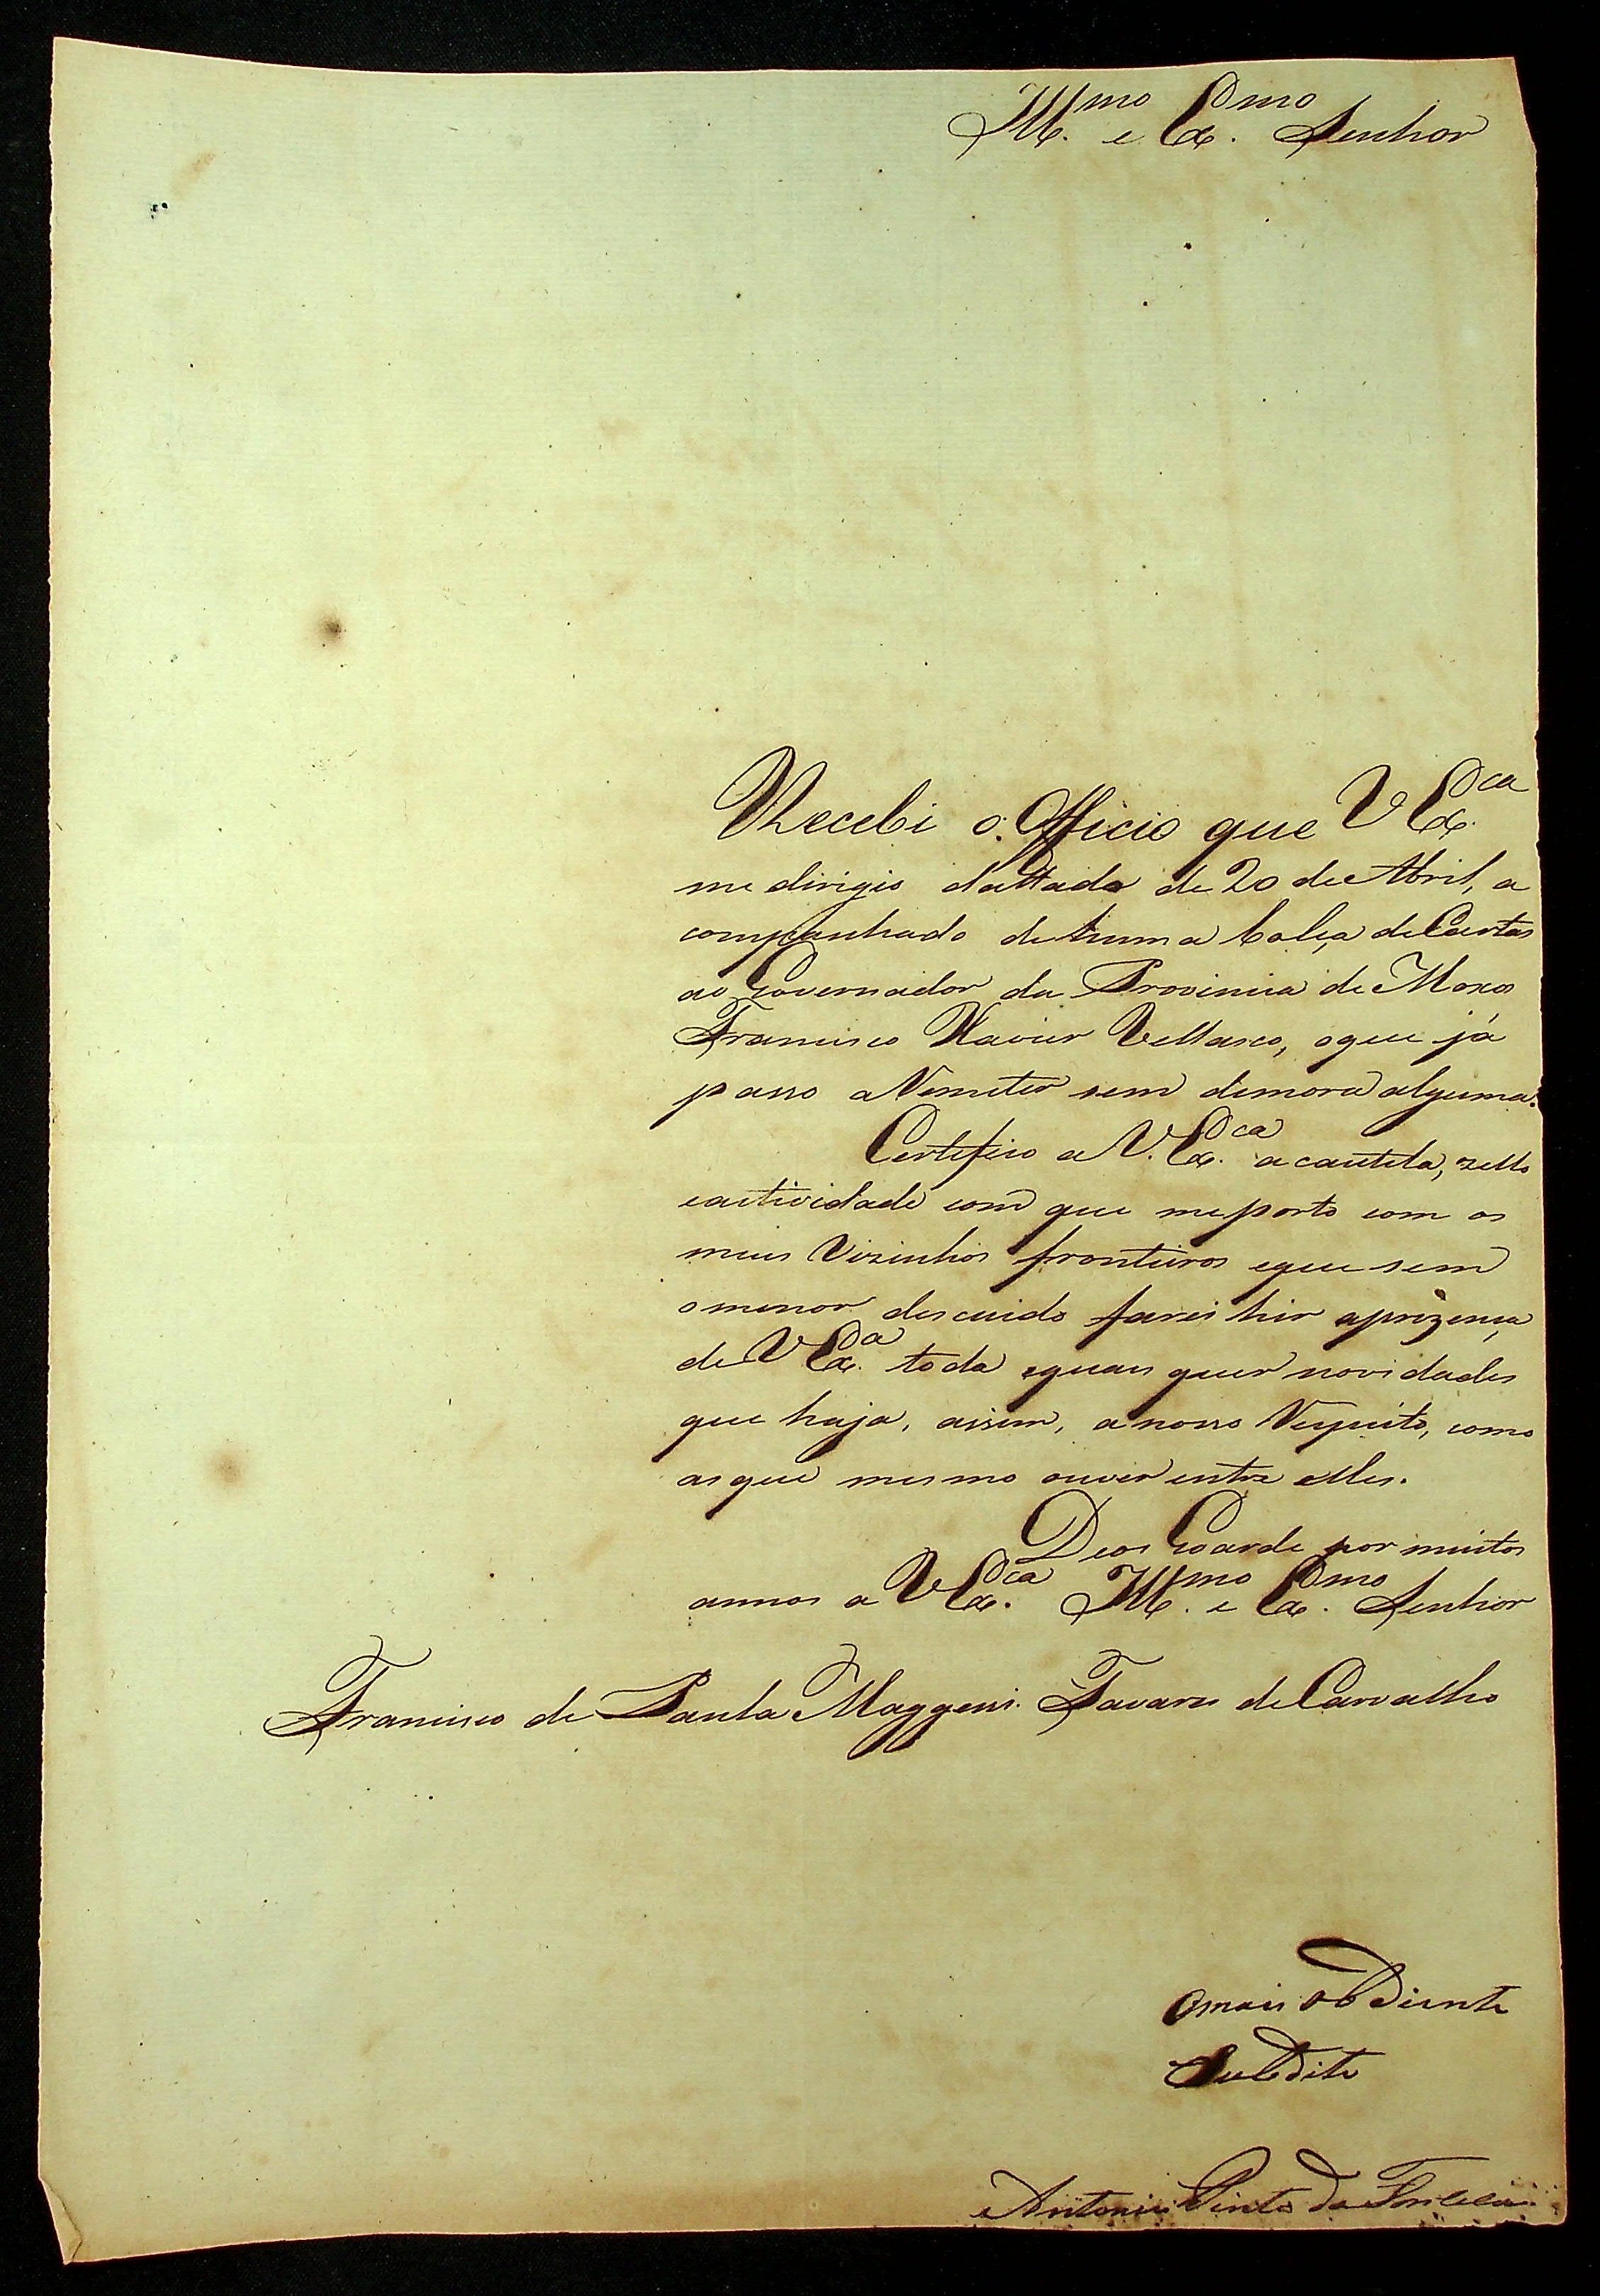 Ill.mo e Ex.mo Senhor
Recebi o Officio que V Ex.ca
me dirigio dattado de 20 de Abril, a
companhado de huma bolça de Cartas
ao Governador da Provincia de Moxos
Francisco Xavier Vellasco, oque já
passo a Remeter sem demora alguma.
Certefico a V. Ex.ca a cautela, zello
eactividade com que meporto com os
meus Vizinhos fronteiros eque sem
omenor descuido farei hir aprezença
de V Ex.a toda equais quer novidades
que haja, assim, a nosso Respeito, como
asque mesmo ouver entre elles.
Deos Goarde por muitos
annos a V Ex.ca Ill.mo e Ex.mo Senhor
Francisco de Paula Maggessi Tavares de Carvalho
Omais obDiente
SubDito
Antonio Pinto da Fonceca